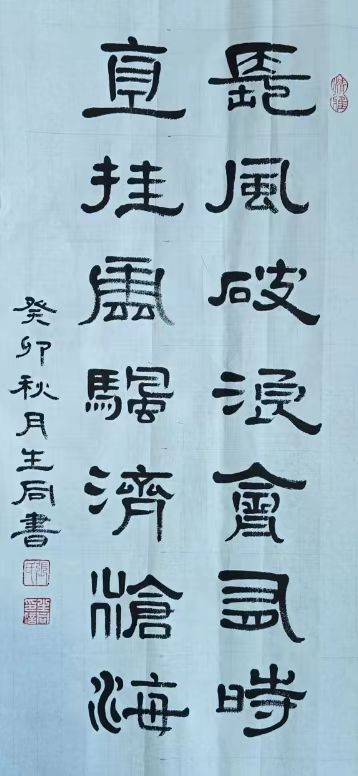 長風破浪會有時
直挂雲颿濟滄海
癸卯秋月生同書